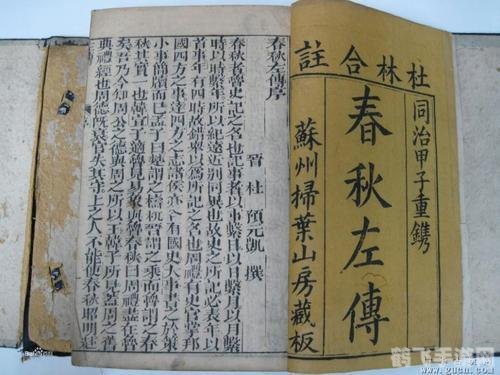 杜林合註
同治甲子重鐫
春秋左傳
蘇州掃葉山房藏板
春秋左傳序
晉 杜 預元凱 撰
春秋者魯史記之名也記事者以事繫日以日繫月以月繫
時以時繫年所以紀遠近別同異也故史之所記必表年以
首事年有四時故錯舉以為所記之名也周禮有史官掌邦
國四方之事達四方之志諸侯亦各有國史大事書之於策
小事簡牘而已孟子曰楚謂之檮杌晉謂之乘而魯謂之春
秋其實一也韓宣子適魯見易象與魯春秋曰周禮盡在魯
矣吾乃今知周公之德與周之所以王韓子所見蓋周之舊
典禮經也周德既衰官失其守上之人不能使春秋昭明赴
鹤飞手游网
www.gucn.com